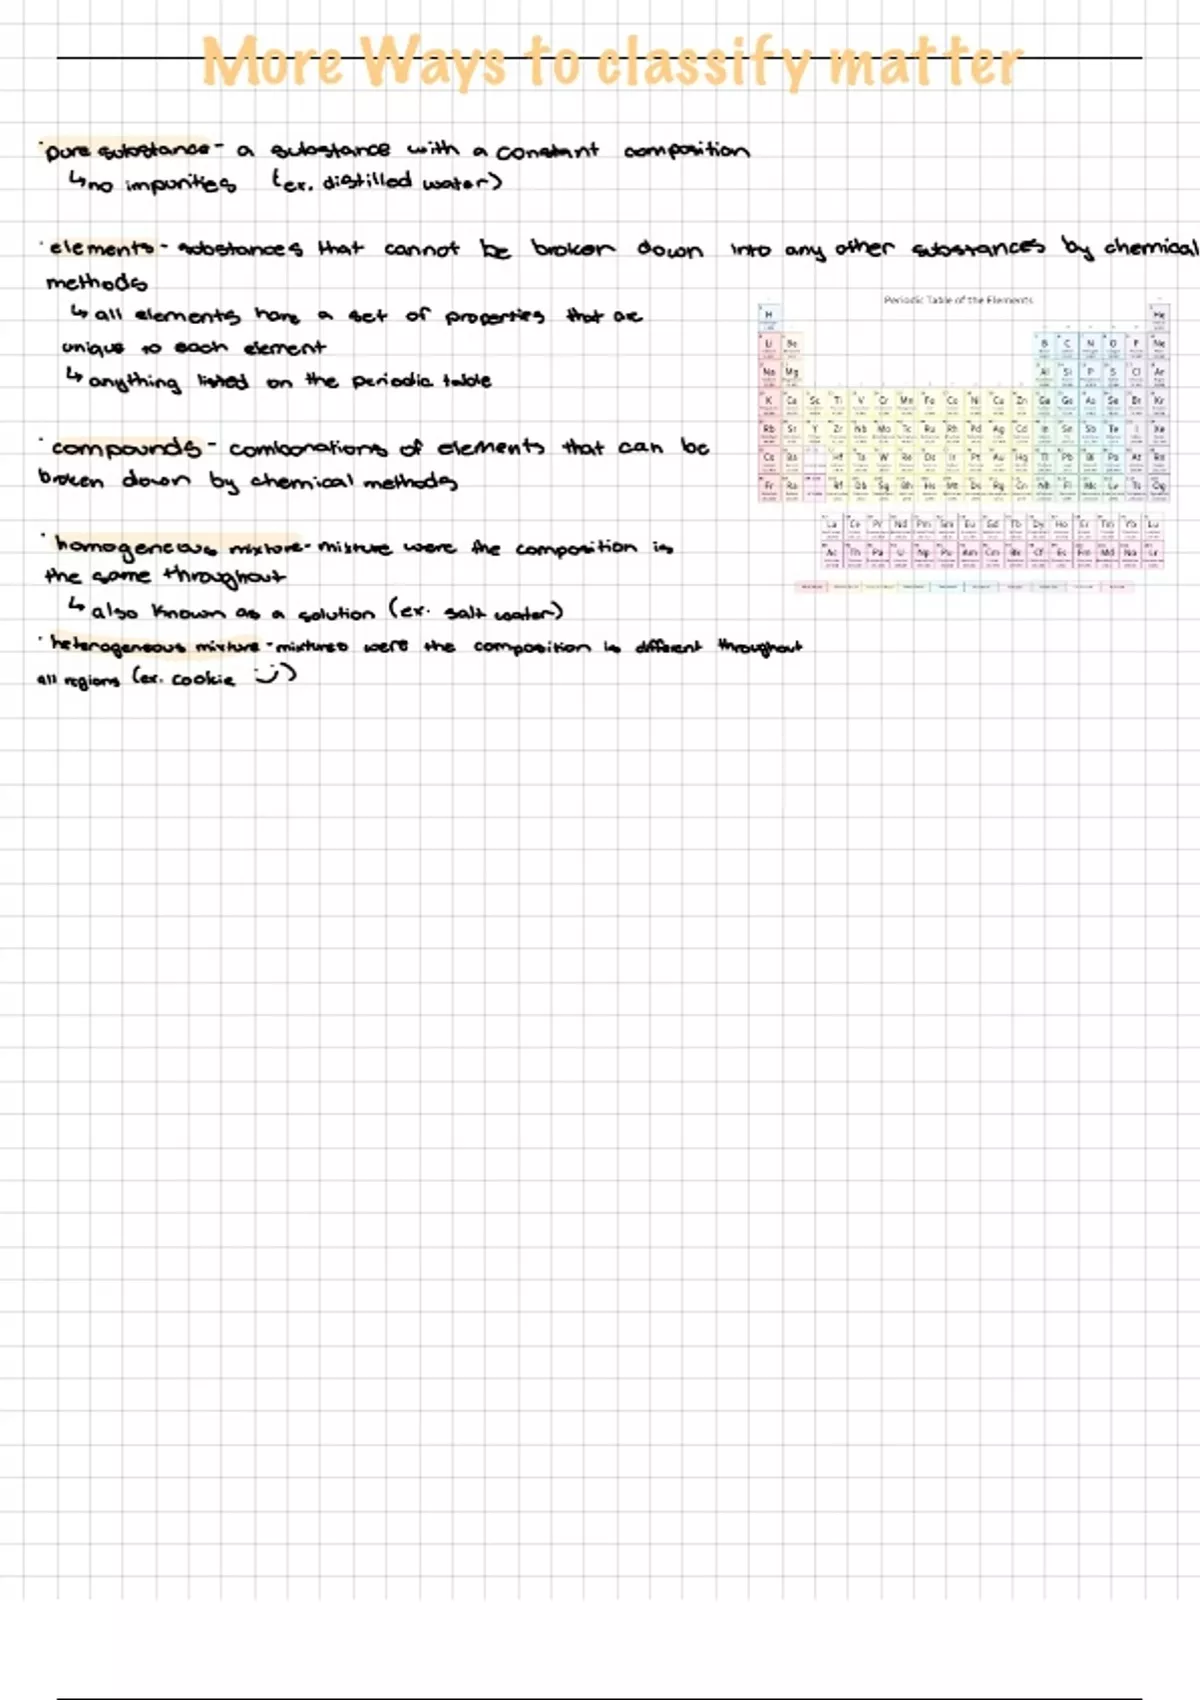 More Ways to classify matter
·pure substance- a substance with a constant composition
↳no impurities (ex. distilled water)
·elements- substances that cannot be broken down into any other substances by chemical
methods
↳all elements have a set of properties that are
unique to each element
↳anything listed on the periodic table
·compounds- combonations of elements that can be
broken down by chemical methods
·homogeneous mixture- mixture were the composition is
the same throughout
↳also known as a solution (ex. salt water)
·heterogeneous mixture-mixtures were the composition is different throughout
all regions (ex. cookie :))
Periodic Table of the Elements
H He
Li Be B C N O F Ne
Na Mg Al Si P S Cl Ar
K Ca Sc Ti V Cr Mn Fe Co Ni Cu Zn Ga Ge As Se Br Kr
Rb Sr Y Zr Nb Mo Tc Ru Rh Pd Ag Cd In Sn Sb Te I Xe
Cs Ba Hf Ta W Re Os Ir Pt Au Hg Tl Pb Bi Po At Rn
Fr Ra Rf Db Sg Bh Hs Mt Ds Rg Cn Nh Fl Mc Lv Ts Og
La Ce Pr Nd Pm Sm Eu Gd Tb Dy Ho Er Tm Yb Lu
Ac Th Pa U Np Pu Am Cm Bk Cf Es Fm Md No Lr